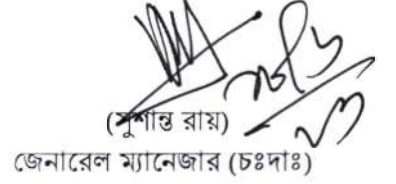 (সুশান্ত রায়)
জেনারেল ম্যানেজার (চঃদাঃ)